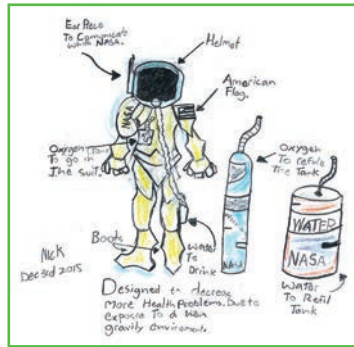 Ear Piece
To Comunicate
With NASA.
Helmet
American
Flag.
NASA
Oxygen
To go in
The suit.
Oxygen
To refule
The Tank
Boots
Water
To
Drink
NASA
WATER
NASA
Water
To Refil
Tank
Nick
Dec 3rd 2015
Designed to decrease
More Health Problems. Due to
exposure To a
gravity enviroment.